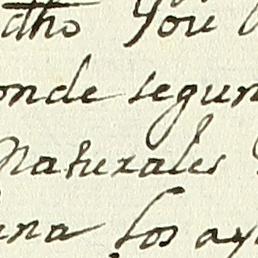 dho You
onde segun
Naturales
una los ay